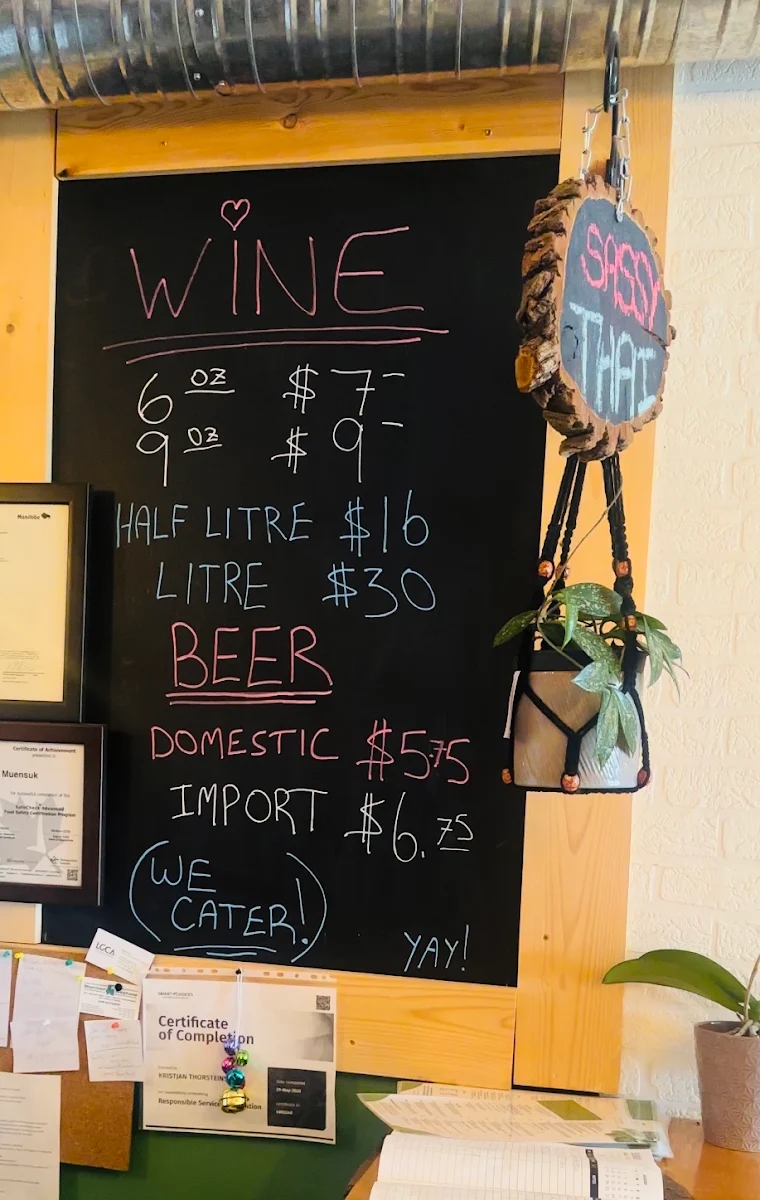 WiNE
6 OZ $7-
9 OZ $9-
HALF LITRE $16
LITRE $30
BEER
DOMESTIC $5.75
IMPORT $6.75
(WE
CATER!)
YAY!
SASSY
THAI
Manitoba
Certificate of Achievement
Muensuk
Food Safety Certification Program
LGCA
Certificate
of Completion
KRISTJAN THORSTEIN
Responsible Service